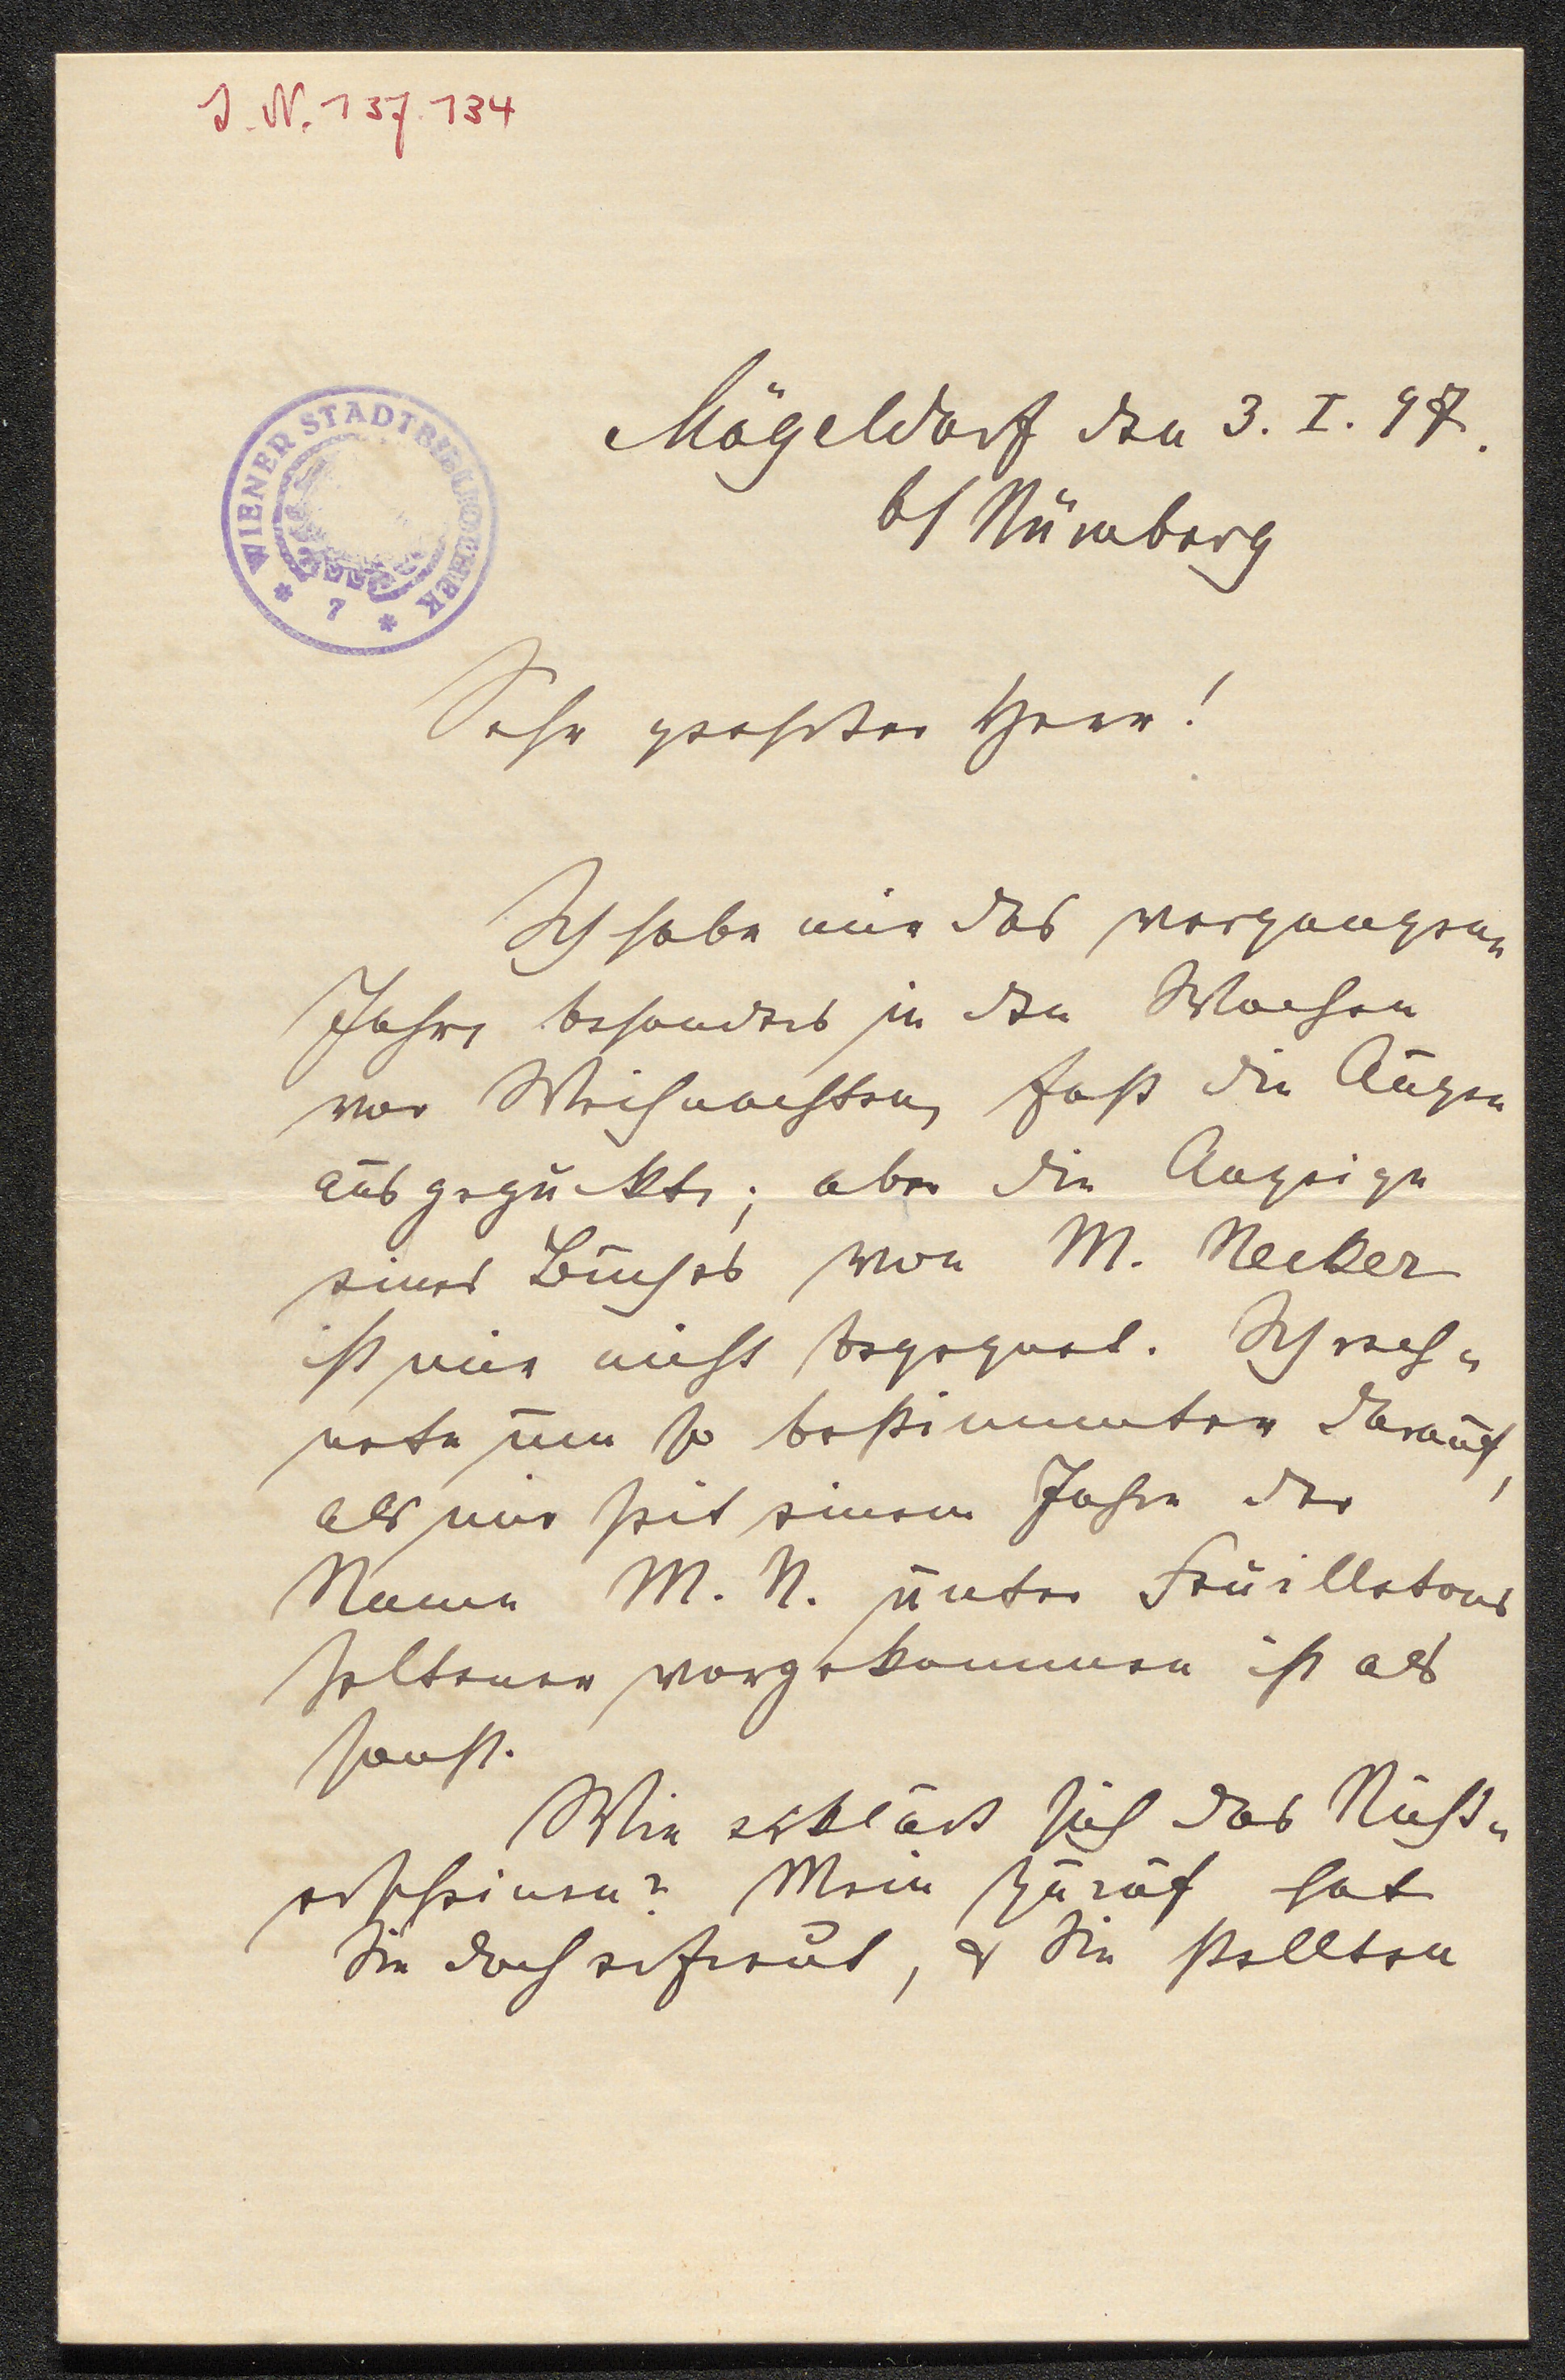 J. N. 137.134
WIENER STADTBIBLIOTHEK
* 7 *
Mögeldorf den 3. I. 97.
b/ Nürnberg
Sehr geehrter Herr!
Ich habe mir das vergangene
Jahr, besonders in den Wochen
vor Weihnachten, fast die Augen
ausgeguckt; aber die Anzeige
eines Buches von M. Necker
ist mir nicht begegnet. Ich rech-
nete um so bestimmter darauf,
als mir seit einem Jahre der
Name M. N. unter Feuilletons
seltener vorgekommen ist als
sonst.
Wie erklärt sich das Nicht-
erscheinen? Mein Zuruf hat
Sie doch erfreut, & Sie stellten